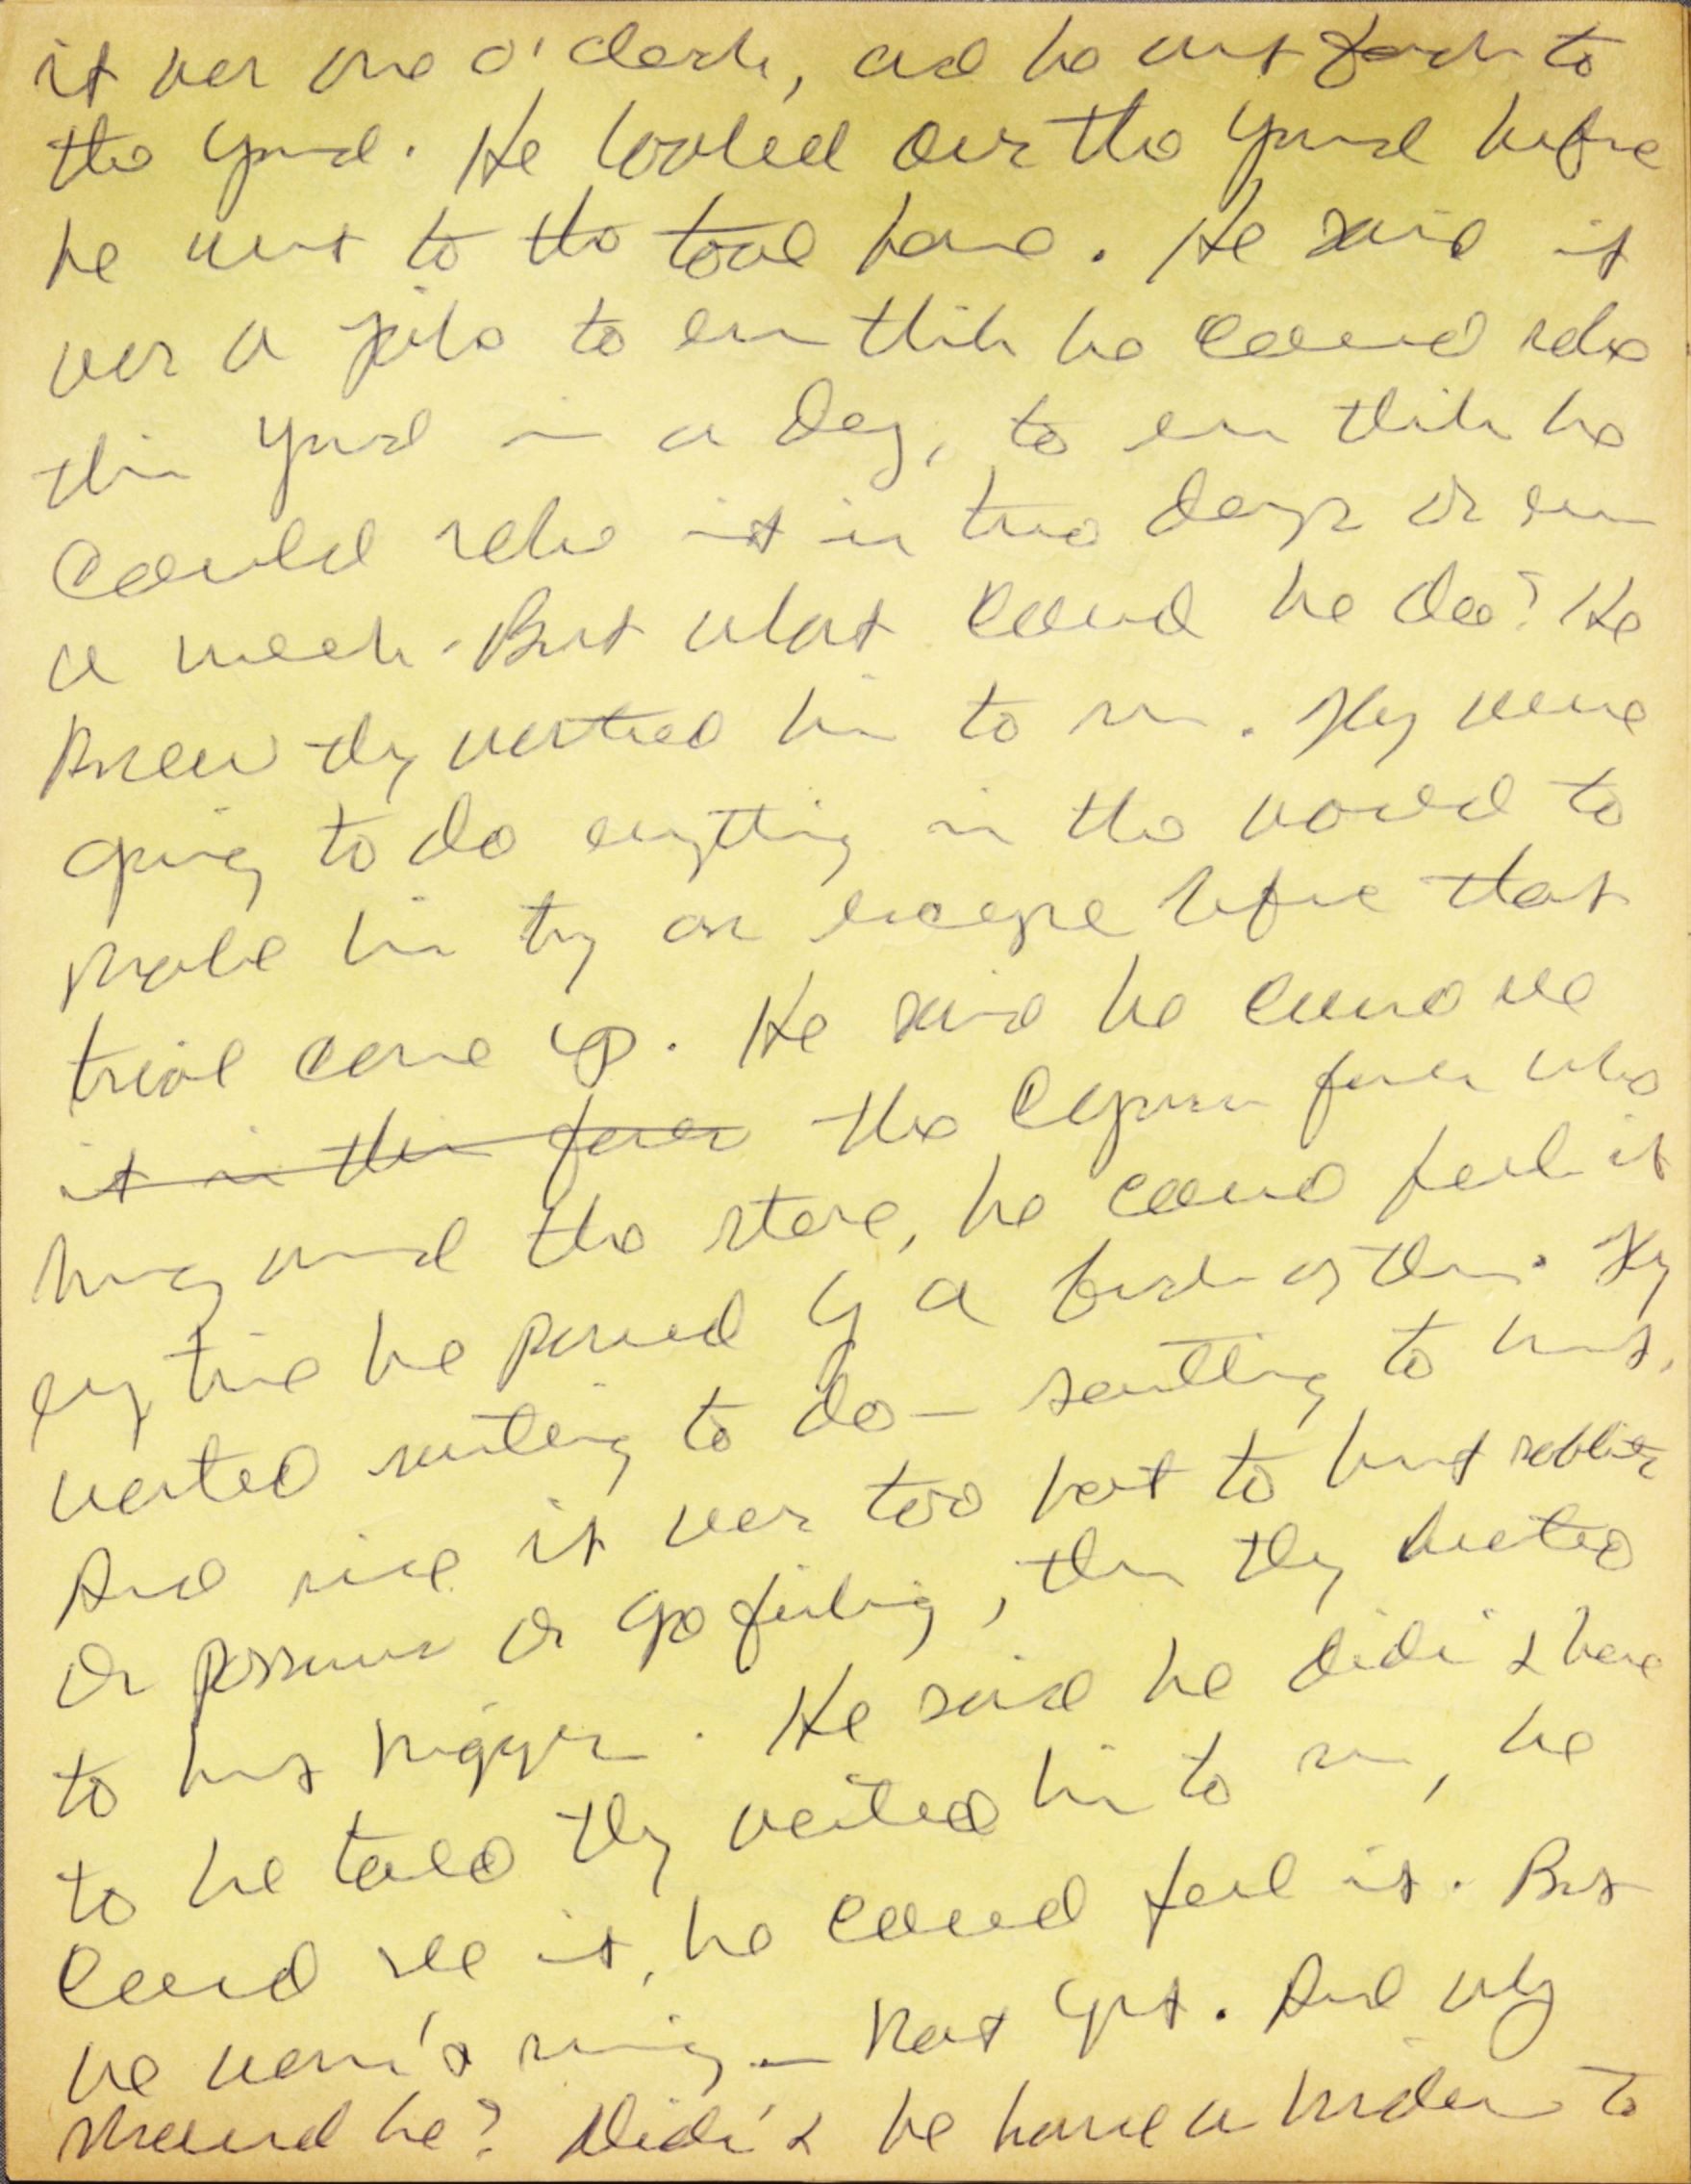 it was one o'clock, and he went back to
the yard. He looked over the yard before
he went to the tool house. He said it
was a joke to even think he could rake
this yard in a day, to even think he
could rake it in two days or even
a week. But what could he do? He
knew they wanted him to run. They were
going to do everything in the world to
make him try an escape before that
trial came up. He said he could see
it in their faces the Cajun faces who
hung round the store, he could feel it
every time he passed by a bunch of them. They
wanted something to do — something to hunt.
And since it was too hot to hunt rabbits
or possums or go fishing, then they wanted
to hunt nigger. He said he didn't have
to be told they wanted him to run, he
could see it, he could feel it. But
he wasn't running — not yet. And why
should he? Didn't he have a burden to